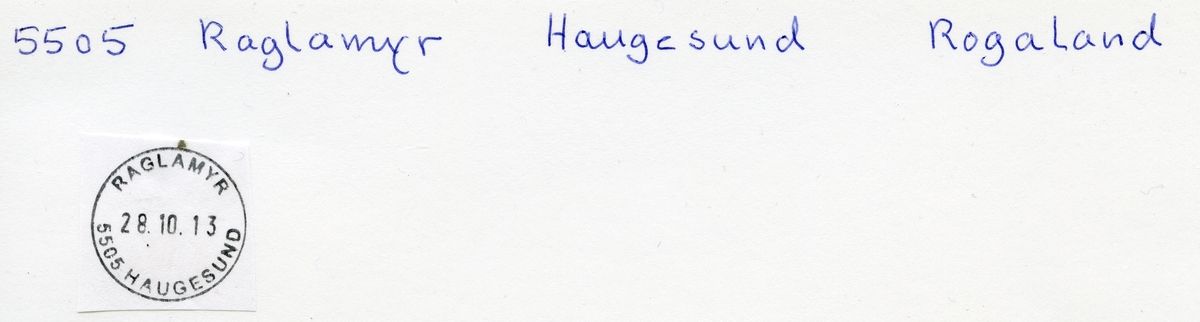 5505 Raglamyr Haugesund Rogaland
RAGLAMYR
28.10.13
5505 HAUGESUND